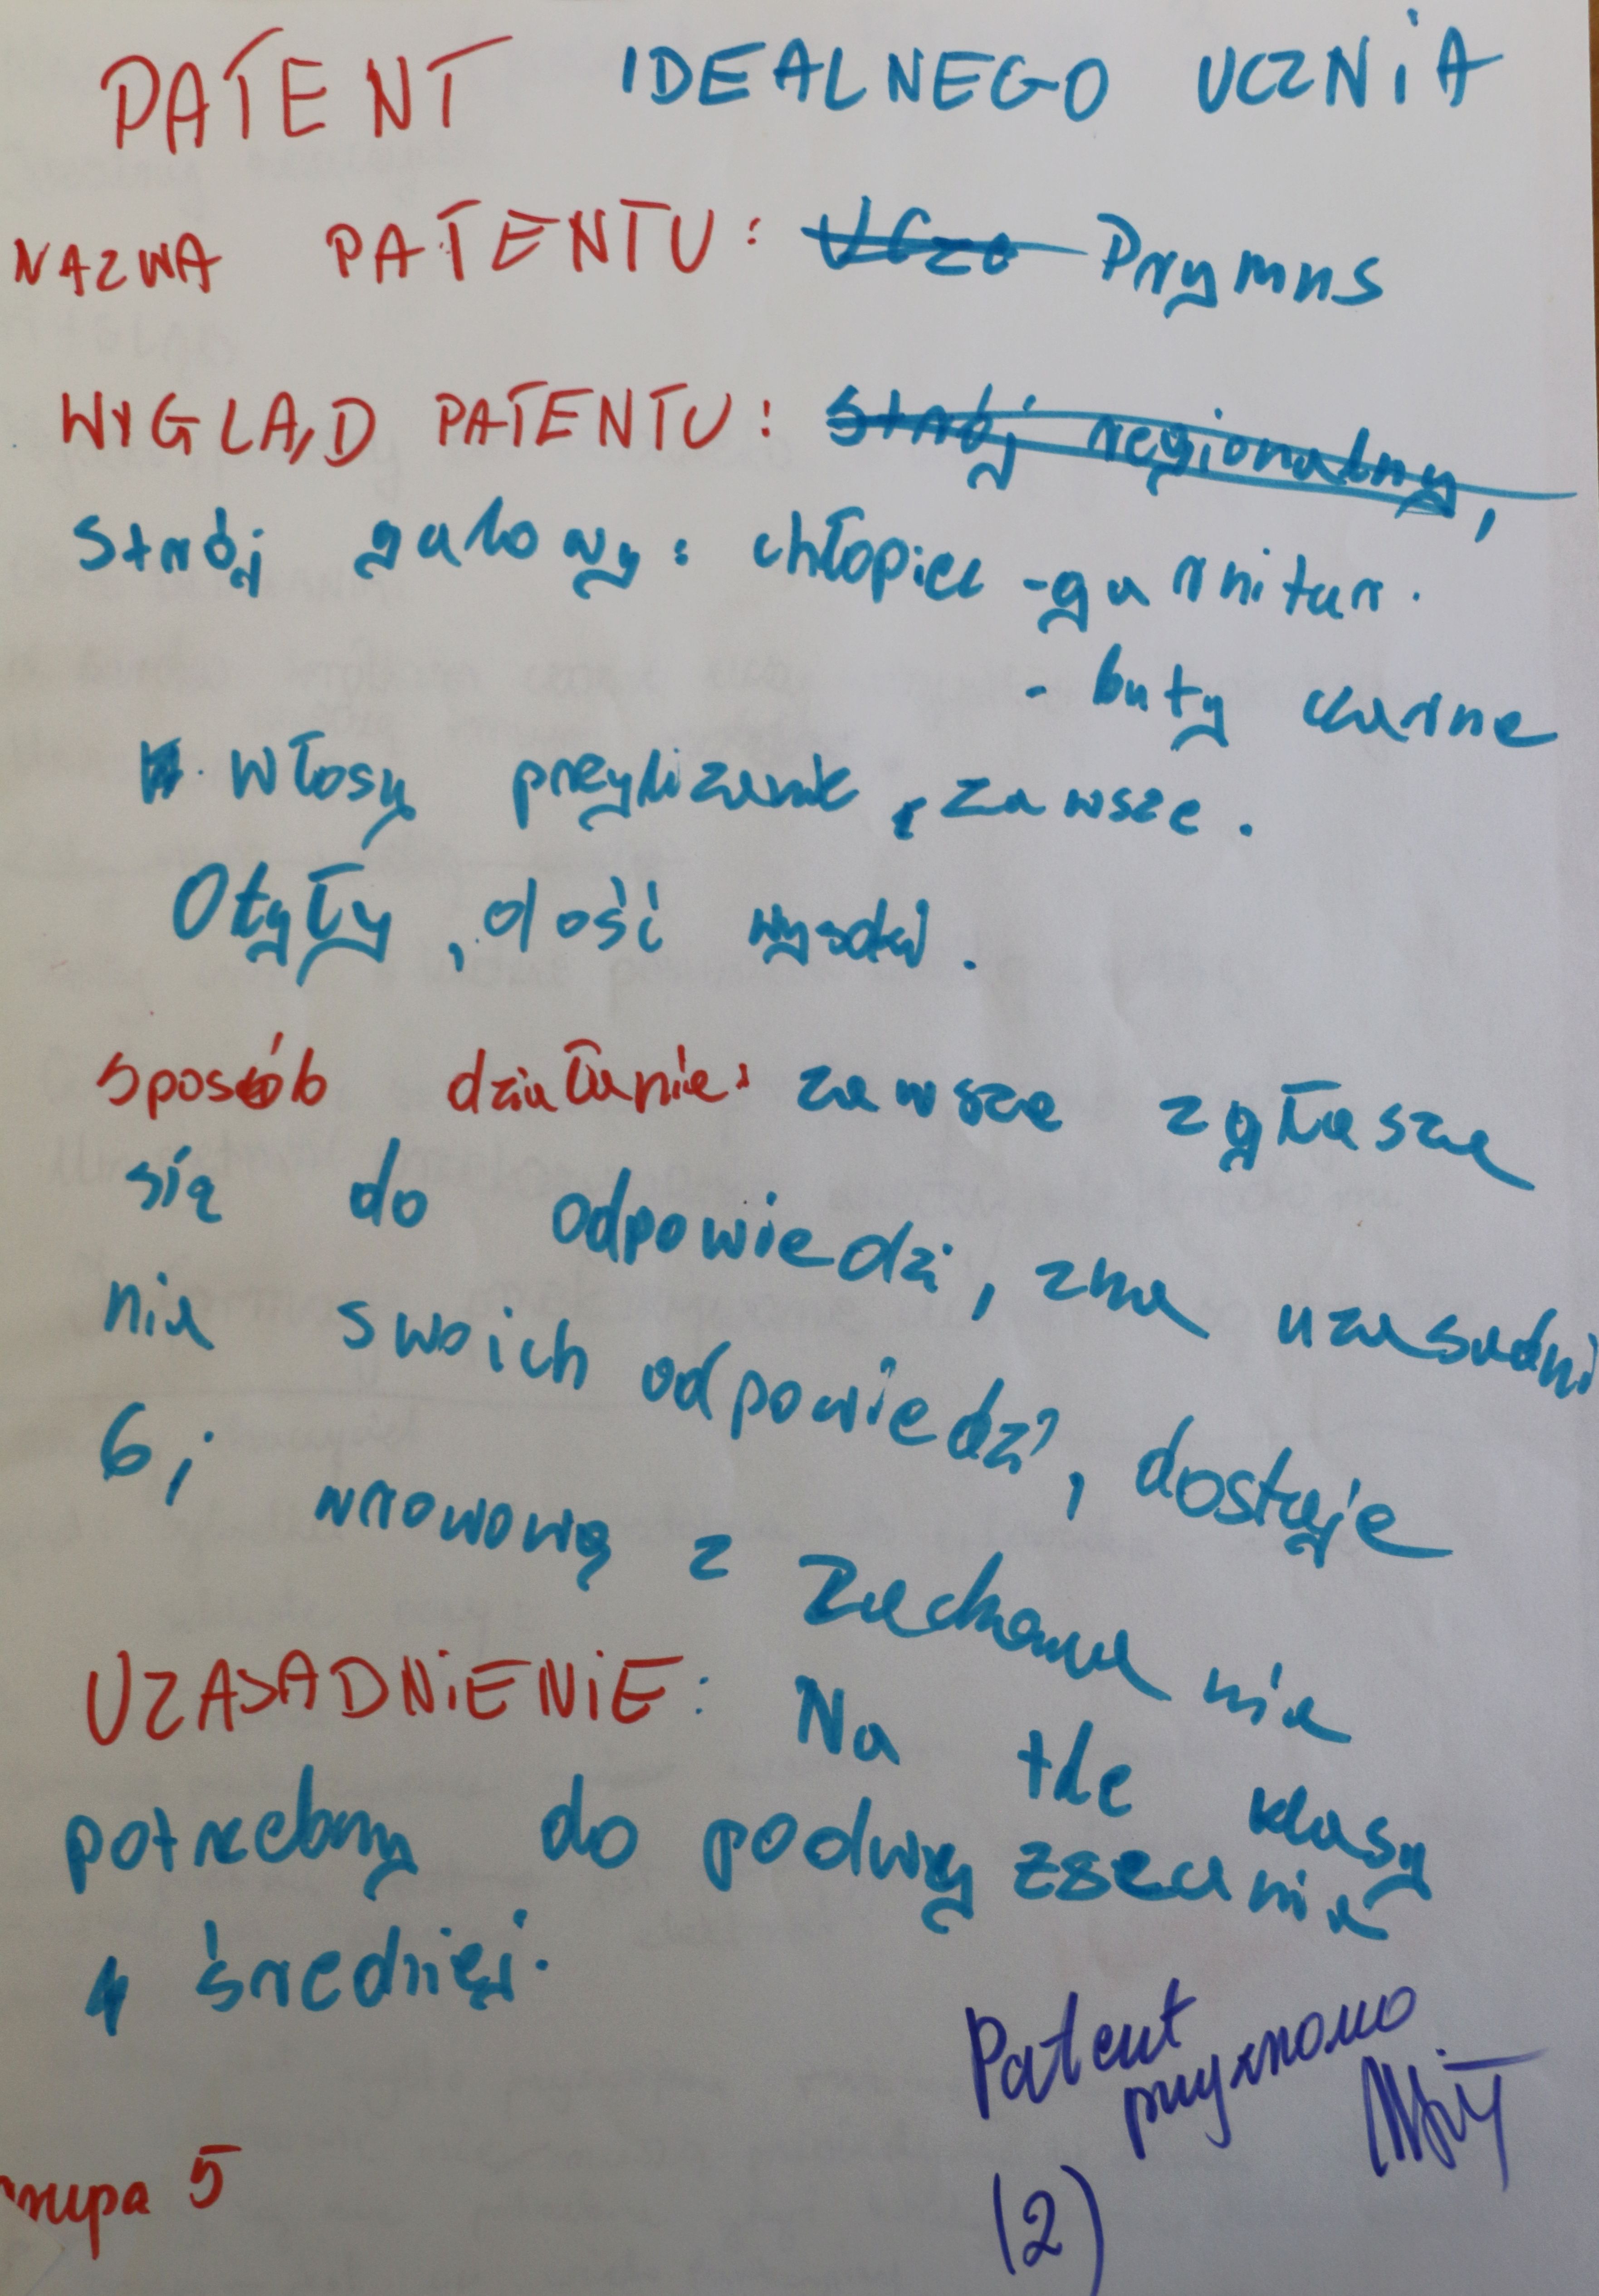 PATENT IDEALNEGO UCZNiA
NAZWA PATENTU: Uczo Prymus
WYGLĄD PATENTU: Strój regionalny,
Strój galowy: chłopiec - garnitur.
- buty czarne
Włosy przylizane, zawsze.
Otyły, dość wysoki.
Sposób działania: zawsze zgłasza
się do odpowiedzi, zna uzasadni
nia swoich odpowiedzi, dostaje
6, wzorową z Zachowania
UZASADNiENiE: Na tle klasy
potrzebny do podwyższania
średniej.
Patent
przyznano
(2)
grupa 5